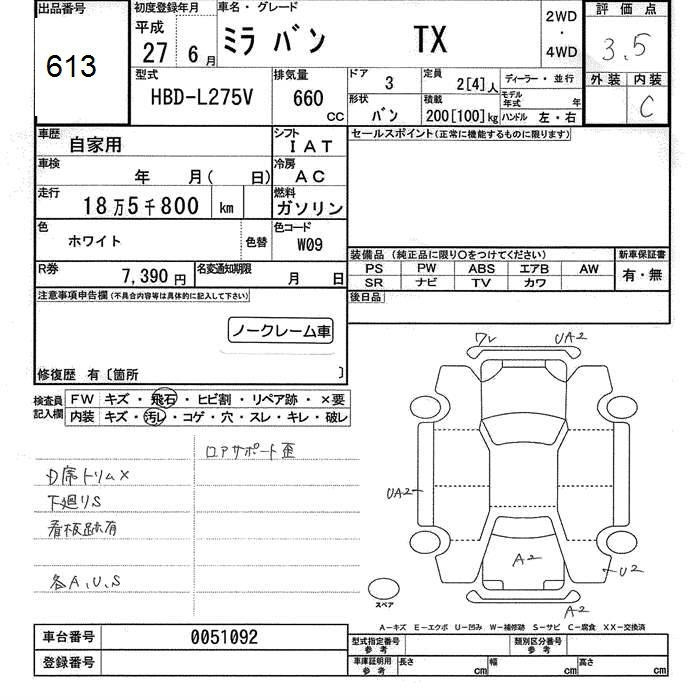 出品番号
613
初度登録年月
平成
27 6月
車名・グレード
ミラ バン TX
2WD
・
4WD
評価点
3.5
外装 内装
C
型式
HBD-L275V
排気量
660
CC
ドア
3
形状
バン
定員
2[4]人
積載
200[100]kg
ディーラー・並行
モデル年式 年
ハンドル 左・右
車歴
自家用
シフト
IAT
車検
年 月( 日)
冷房
AC
走行
18万5千800 km
燃料
ガソリン
色
ホワイト
色替
色コード
W09
R券
7,390円
名変通知期限
月 日
セールスポイント(正常に機能するものに限ります)
装備品(純正品に限り○をつけてください)
PS PW ABS エアB AW
SR ナビ TV カワ
新車保証書
有・無
後日品
注意事項申告欄(不具合内容等は具体的に記入して下さい)
ノークレーム車
修復歴 有〔箇所 〕
検査員
記入欄
FW キズ・飛石・ヒビ割・リペア跡・×要
内装 キズ・汚レ・コゲ・穴・スレ・キレ・破レ
ロアサポート歪
D席トリム×
下廻りS
看板跡有
各A、U、S
ワレ UA2
UA2
A2
U2
A2
スペア
A-キズ E-エクボ U-凹み W-補修跡 S-サビ C-腐食 XX-交換済
車台番号
0051092
登録番号
型式指定番号
参考
類別区分番号
参考
車庫証明用
参考
長さ cm
幅 cm
高さ cm